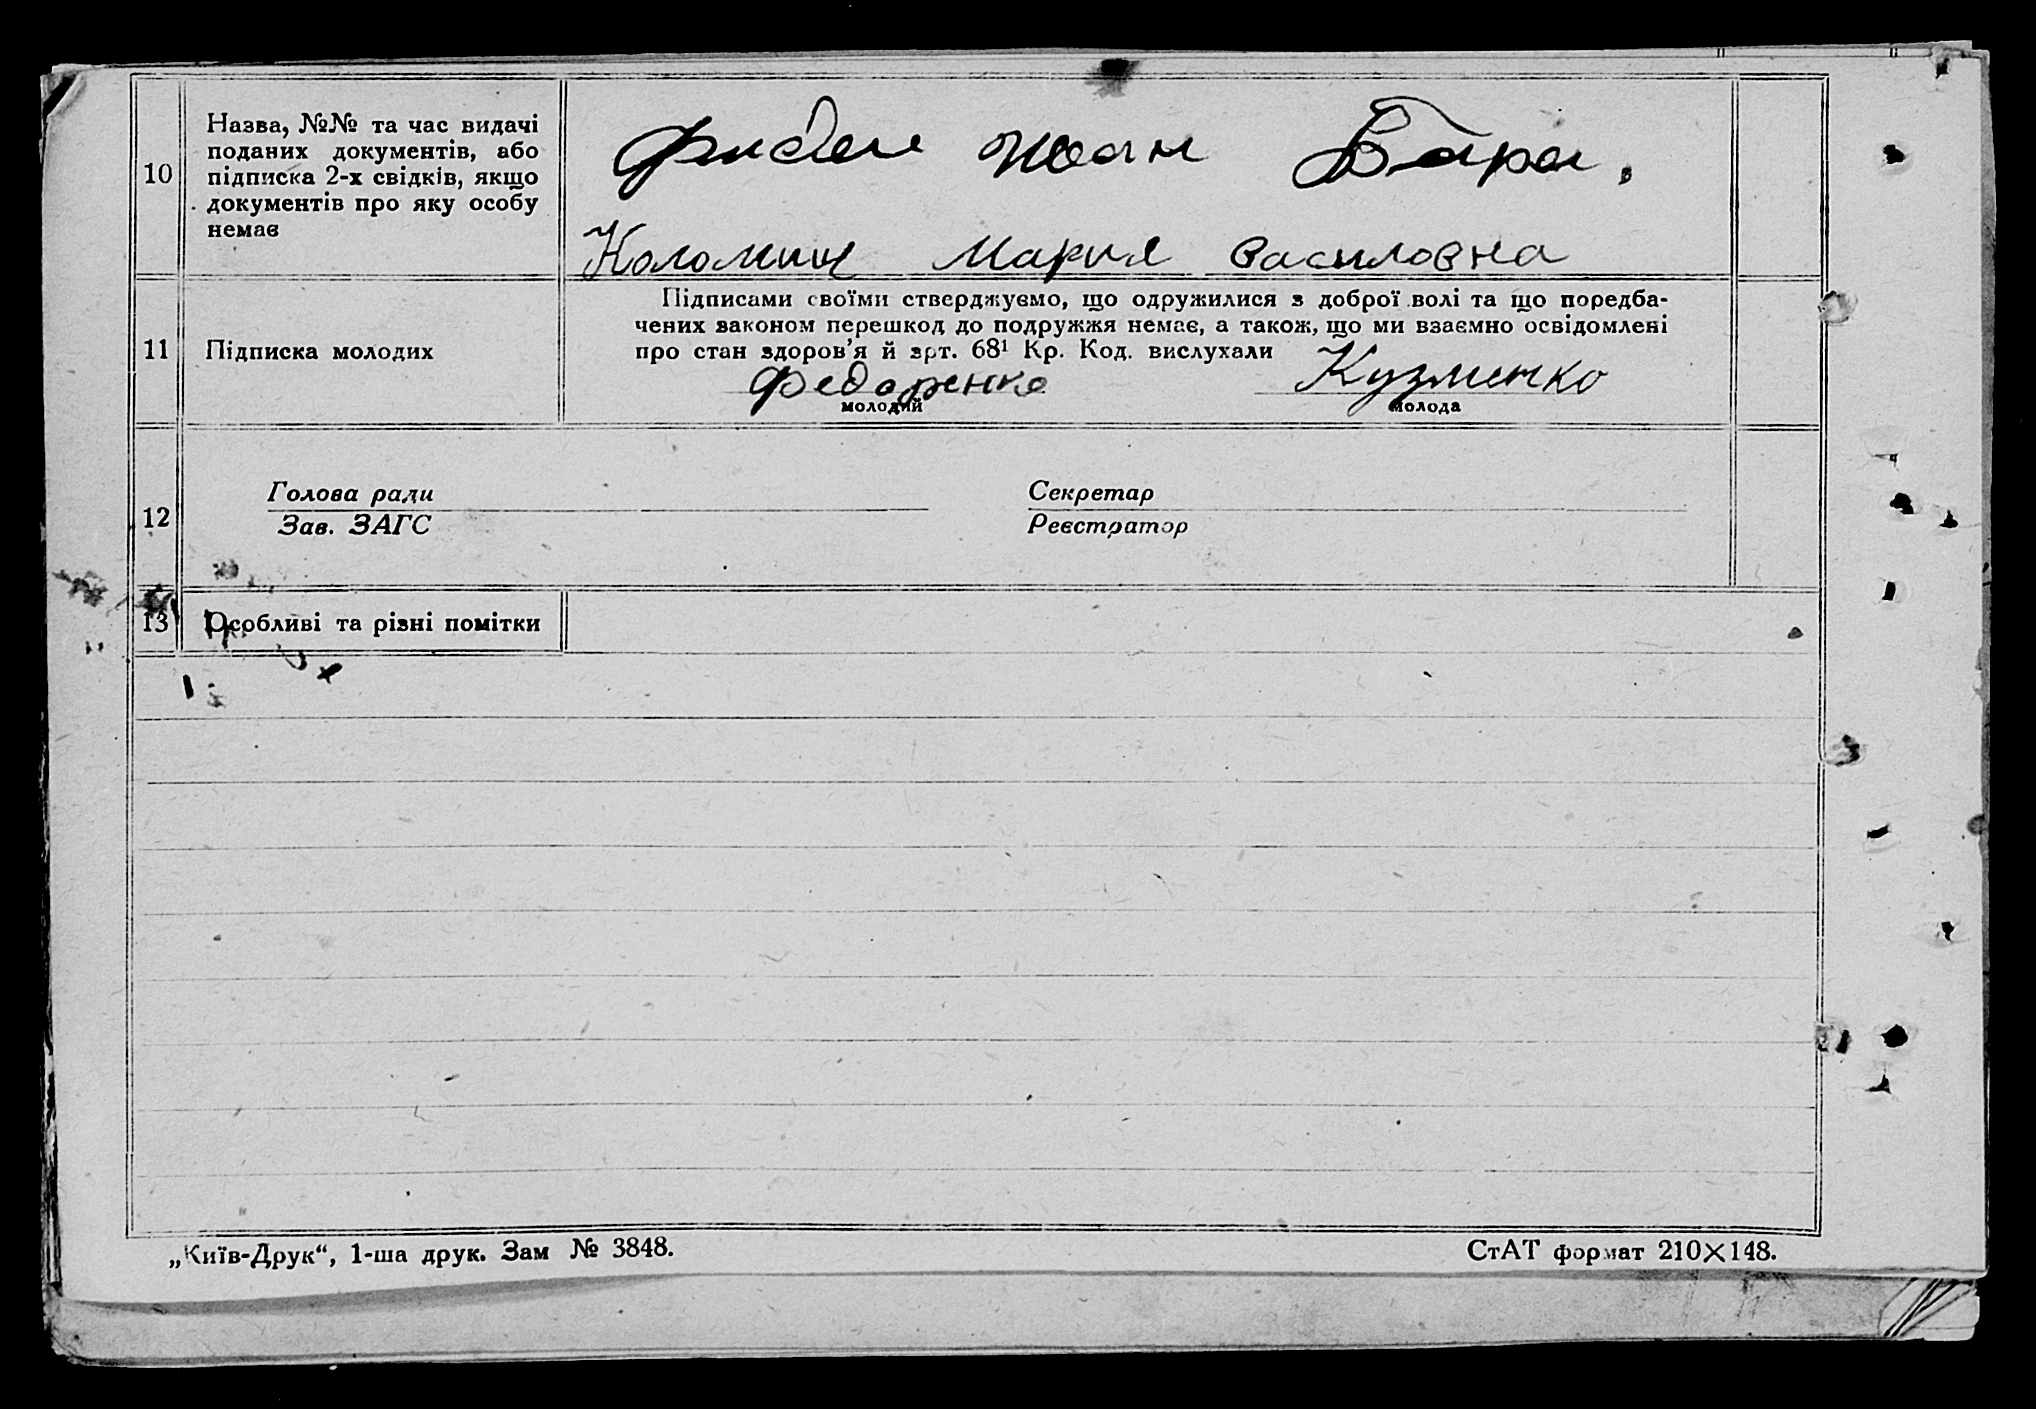 10
Назва, №№ та час видачі
поданих документів, або
підписка 2-х свідків, якщо
документів про яку особу
немає
Коломиец Мария василовна
11
Підписка молодих
Підписами своїми стверджуємо, що одружилися з доброї волі та що передба-
чених законом перешкод до подружжя немає, а також, що ми взаємно освідомлені
про стан здоров'я й арт. 68¹ Кр. Код. вислухали
Федоренко
Кузменко
молодий
молода
12
Голова ради
Зав. ЗАГС
Секретар
Реєстратор
13
Особливі та різні помітки
„Київ-Друк“, 1-ша друк. Зам № 3848.
СтАТ формат 210×148.